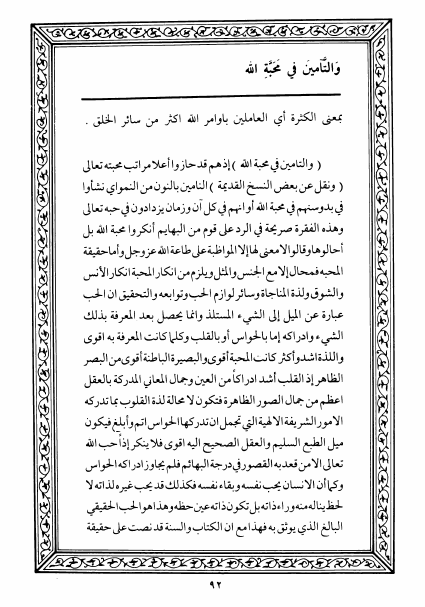 وَالتَّامِينَ فِي مَحَبَّةِ اللهِ
بمعنى الكثرة أي العاملين باوامر الله اكثر من سائر الخلق .
( والتامين في محبة الله ) إذهم قد حازوا أعلا مراتب محبته تعالى
( ونقل عن بعض النسخ القديمة ) النامين بالنون من النمو اي نشأوا
في بدوسنهم في محبة الله أو انهم في كل آن وزمان يزدادون في حبه تعالى
وهذه الفقرة صريحة في الرد على قوم من البهايم أنكروا محبة الله بل
أحالوها وقالوا لامعنى لها إلا المواظبة على طاعة الله عز وجل وأما حقيقة
المحبه فمحال إلا مع الجنس والمثل ويلزم من انكار المحبة انكار الأنس
والشوق ولذة المناجاة وسائر لوازم الحب وتوابعه والتحقيق ان الحب
عبارة عن الميل إلى الشيء المستلذ وانما يحصل بعد المعرفة بذلك
الشيء وادراكه إما بالحواس أو بالقلب وكلما كانت المعرفة به اقوى
واللذة اشد وأكثر كانت المحبة أقوى والبصيرة الباطنة أقوى من البصر
الظاهر إذ القلب أشد ادراكاً من العين وجمال المعاني المدركة بالعقل
اعظم من جمال الصور الظاهرة فتكون لا محالة لذة القلوب بما تدركه
الامور الشريفة الالهية التي تجمل ان تدركها الحواس اتم وأبلغ فيكون
ميل الطبع السليم والعقل الصحيح اليه اقوى فلا ينكر إذاً حب الله
تعالى الا من قعد به القصور في درجة البهائم فلم يجاوز ادراكه الحواس
وكما أن الانسان يحب نفسه وبقاء نفسه فكذلك قد يحب غيره لذاته لا
لحظ يناله منه وراء ذاته بل تكون ذاته عين حظه وهذا هو الحب الحقيقي
البالغ الذي يوثق به فهذا مع ان الكتاب والسنة قد نصت على حقيقة
٩٢